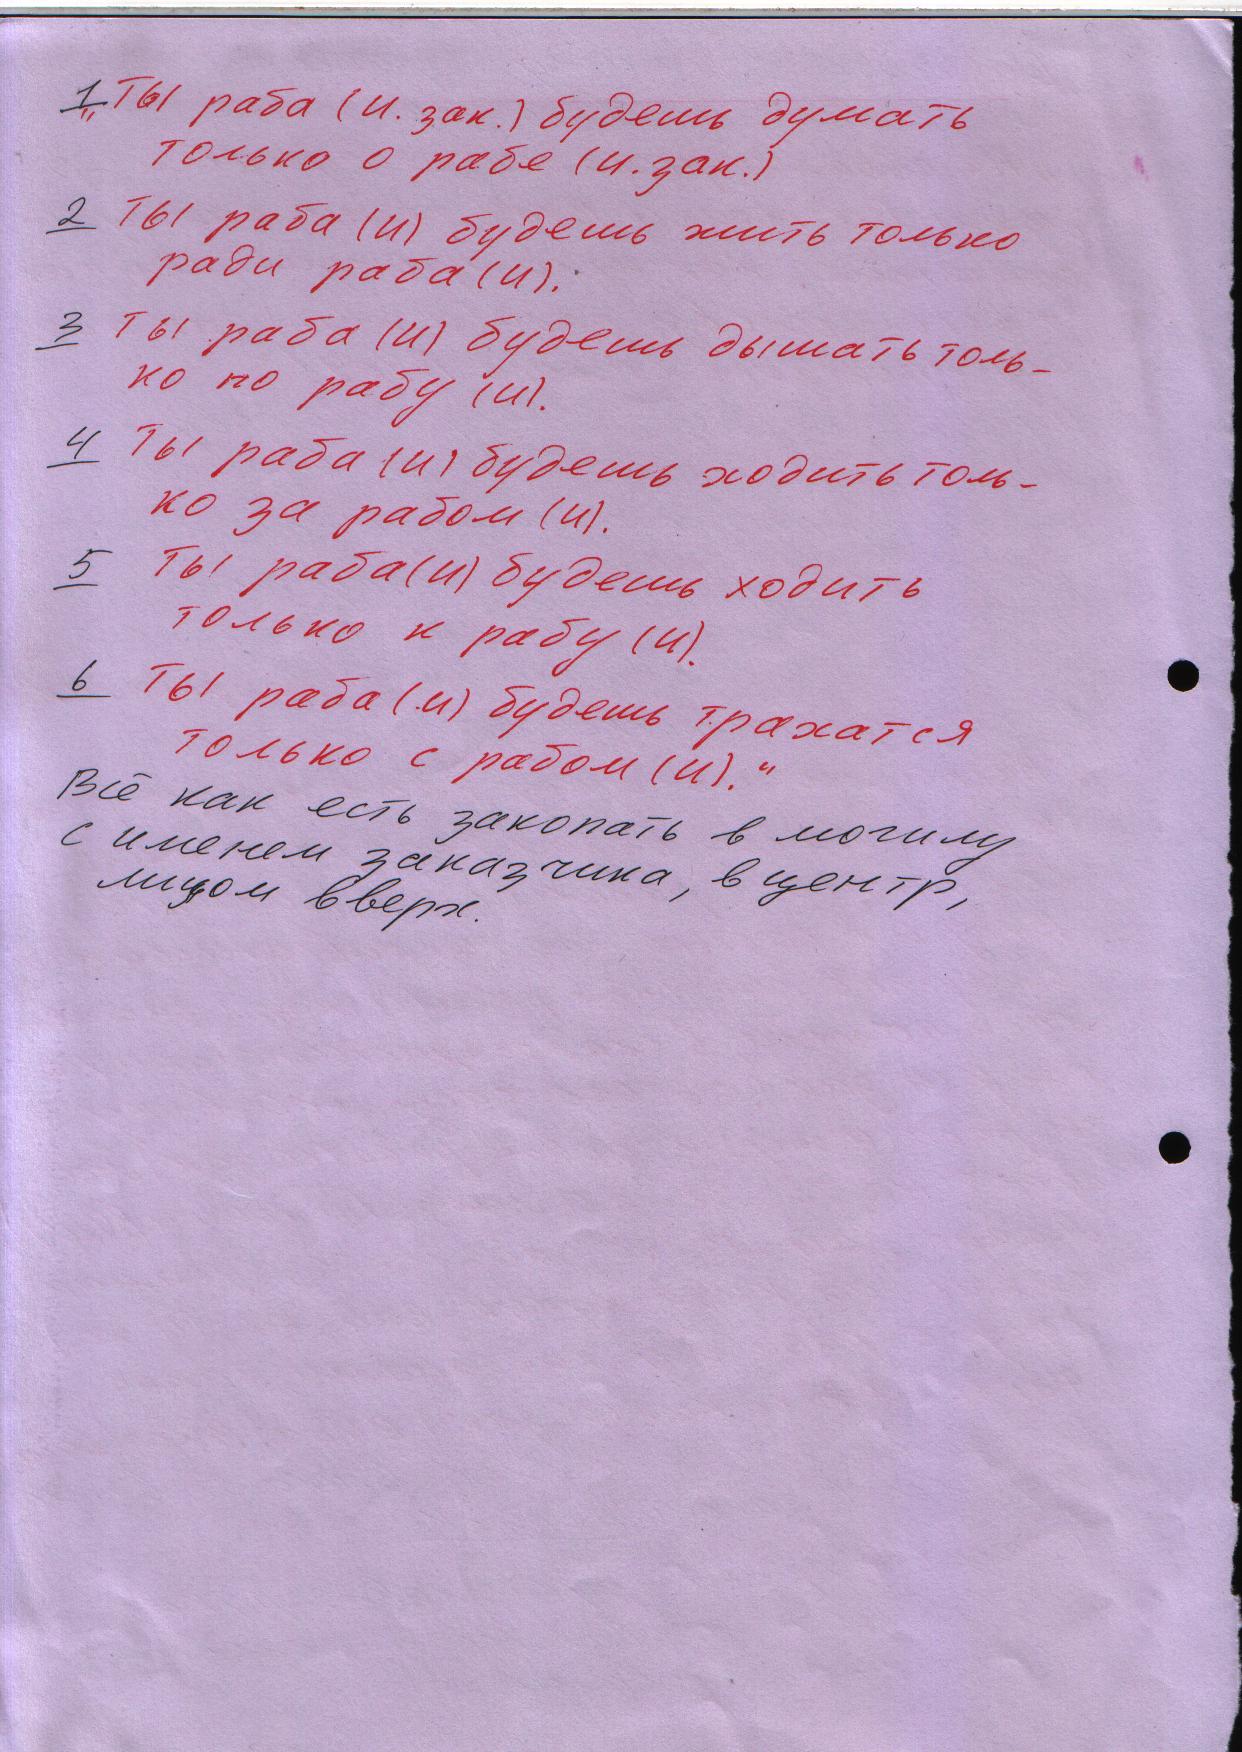 1 "Ты раба (и. зак.) будешь думать
только о рабе (и. зак.)
2 Ты раба (и) будешь жить только
ради раба (и).
3 Ты раба (и) будешь дышать толь-
ко по рабу (и).
4 Ты раба (и) будешь ходить толь-
ко за рабом (и).
5 Ты раба (и) будешь ходить
только к рабу (и).
6 Ты раба (и) будешь трахатся
только с рабом (и)."
Всё как есть закопать в могилу
с именем заказчика, в центр,
лицом вверх.